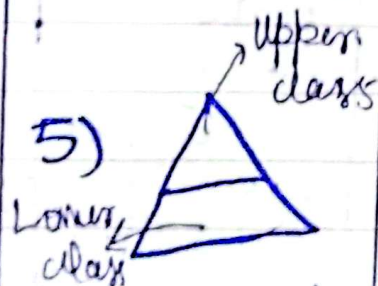 Upper
class
5)
Lower
class